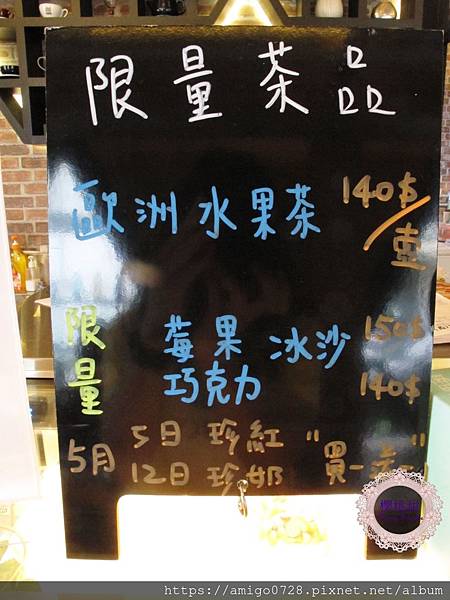 限量茶品
歐洲水果茶 140$/壺
限量
莓果冰沙 150$
巧克力 140$
5月 5日 珍紅
12日 珍奶
"買一送一"
https://amigo0728.pixnet.net/album